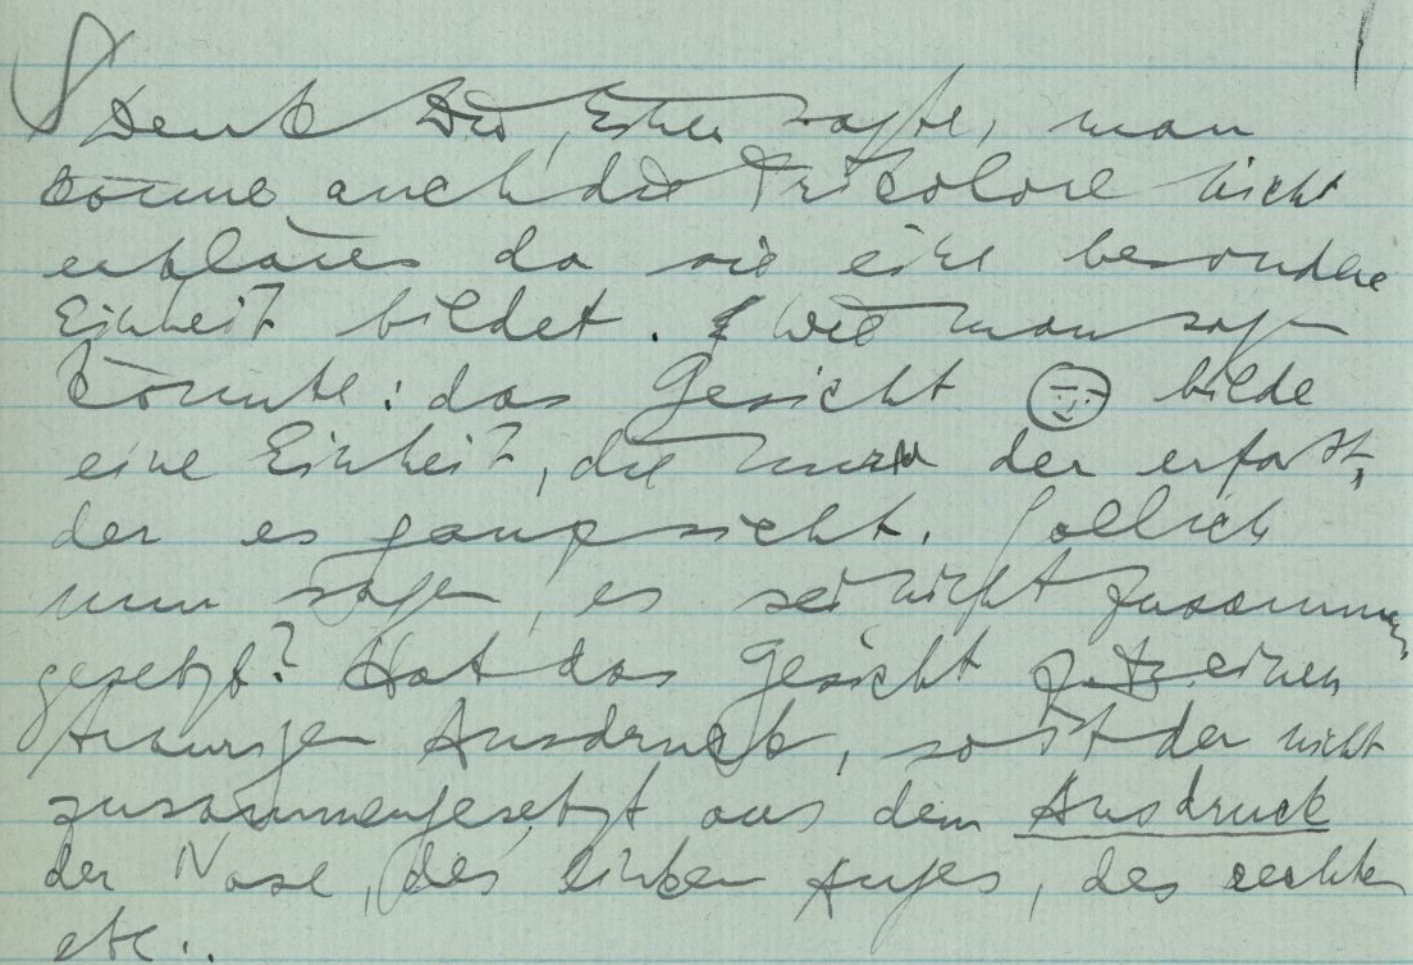 Denk Dir, Einer sagte, man
könne auch die Tricolore nicht
erklären da sie eine besondere
Einheit bildet. Wie man sagen
könnte: das Gesicht bilde
eine Einheit, die nur der erfaßt,
der es ganz sieht. Soll ich
nun sagen, es sei nicht zusammen
gesetzt? Hat das Gesicht einen
traurigen Ausdruck, so ist der nicht
zusammengesetzt aus dem Ausdruck
der Nase, des linken Auges, des rechten
etc..